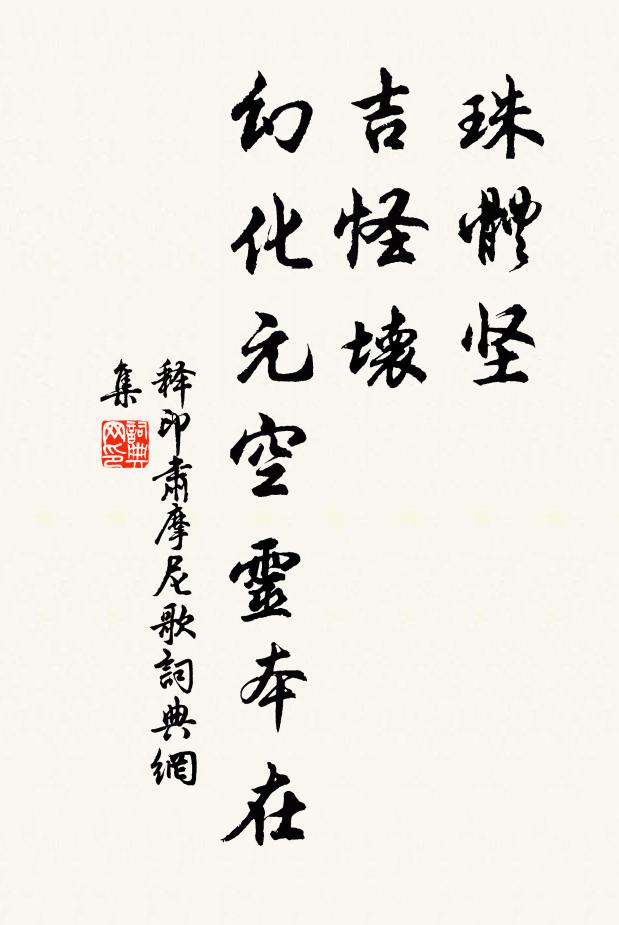 珠體坚
吉怪壞
幻化元空靈本在
释印肃摩尼歌詞典網
集
詞典
网印